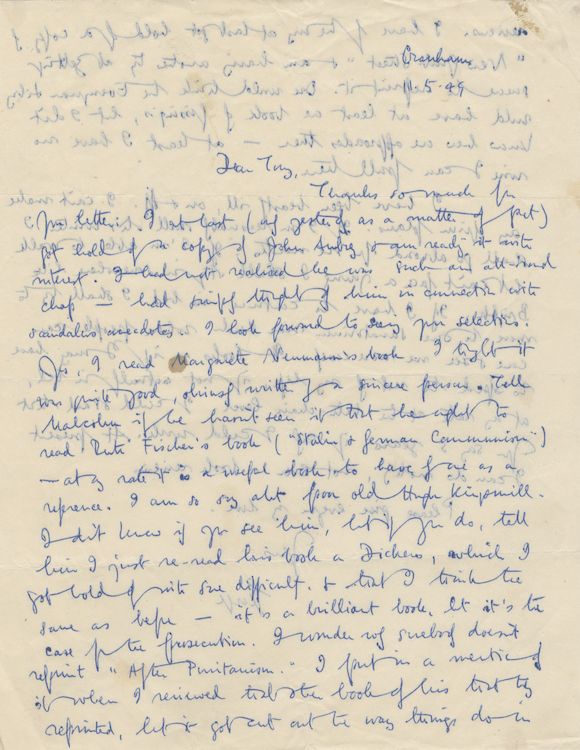 Cranham
11.5.49
Dear Tony,
Thanks so much for
your letter. I at last (only yesterday as a matter of fact)
got hold of a copy of John Aubrey & am reading it with
interest. I had not realised he was such an all-round
chap — had simply thought of him in connection with
scandalous anecdotes. I look forward to seeing your selections.
Yes, I read Margarete Neumann's book. I thought it
was quite good, obviously written by a sincere person. Tell
Malcolm if he hasn't seen it that he ought to
read Ruth Fischer's book ("Stalin & German Communism")
— at any rate it is a useful book to have by one as a
reference. I am so sorry about poor old Hugh Kingsmill.
I don't know if you see him, but if you do, tell
him I just re-read his book on Dickens, which I
got hold of with some difficulty, & that I think the
same as before — it's a brilliant book, but it's the
case for the prosecution. I wonder why somebody doesn't
reprint "After Puritanism." I put in a mention of
it when I reviewed that other book of his that they
reprinted, but it got cut out the way things do in